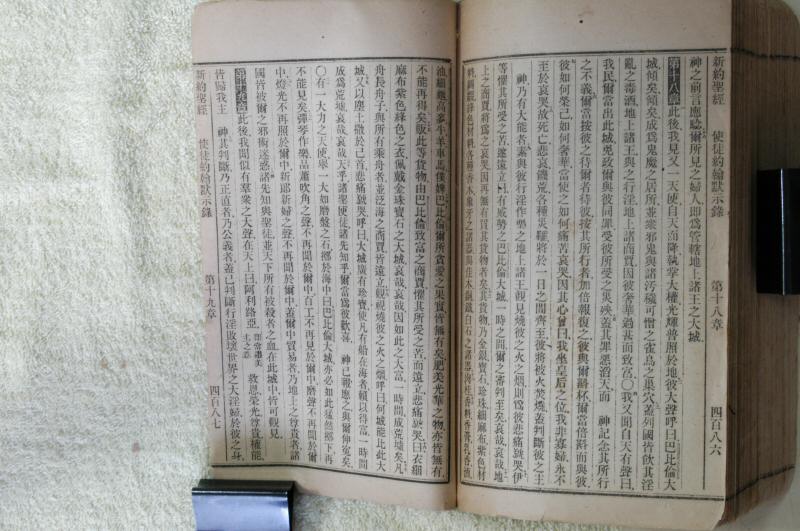 新約聖經　使徒約翰默示錄　第十八章　四百八六
神之前言應驗爾所見之婦人即爲管轄地上諸王之大城
第十八章此後我見又一天使自天而降執掌大權光輝普照於地彼大聲呼曰巴比倫大
城傾矣傾矣成爲鬼魔之居所並衆邪鬼與諸汚穢可憎之雀鳥之巢穴蓋列國皆飲其淫
亂之毒酒地上諸王與之行淫地上諸商賈因彼奢華過甚而致富○我又聞自天有聲曰
我民爾當出此城免致爾與彼同罪受彼所受之災殃蓋其罪惡滔天而　神記念其所行
之不義爾當按彼之待爾者待彼按其所行者加倍報復之彼與爾爵一杯爾當倍爵而與彼
彼如何榮己如何奢華當使之如何痛苦哀哭因其心曾曰我坐皇后之位我非寡婦永不
至於哀哭故死亡悲哀饑荒各種災難將於一日之間齊至彼將被火焚燒蓋判斷彼之主
神乃有大能者素與彼行淫作樂之地上諸王觀見燒彼之火之烟則爲彼悲痛號哭伊
等懼其所受之苦遂遠立曰有威勢之巴比倫大城一時之間爾之審判至矣哀哉哀哉地
上之商賈將爲之哀哭因再無有買其貨物者矣其貨物乃金銀寶石珍珠細麻布紫色材
新約聖經　使徒約翰默示錄　第十九章　四百八七
油細麵高多牛羊車馬僕婢巴比倫爾所貪愛之果實皆無有矣肥美光華之物亦皆無有
不能再得矣販此等貨物由巴比倫致富之商賈懼其所受之苦而遠立悲痛號哭曰衣細
麻布紫色絳色之衣佩戴金珠寶石之大城哀哉哀哉因如此之大富一時間成荒墟矣凡
舟長舟子與所有乘舟者並泛海之商賈皆遠立觀視燒彼之火之烟呼曰何城能比此大
城又以塵土撒於己首悲痛號哭呼曰大城廣有珍寶使凡有船在海者賴以得富一時間
成爲荒墟哀哉哀哉天乎諸聖使徒諸先知乎爾當爲彼歡喜　神已報應之與爾伸冤矣
○有一大力之天使舉一大如磨盤之石擲於海中曰巴比倫大城亦必如此猛然擲下再
不能見矣彈琴作樂品簫吹角之聲不再聞於爾中百工不再見於爾中磨聲不再聞於爾
中燈光不再照於爾中新郎新婦之聲不再聞於爾中蓋爾中貿易者乃地上之尊貴者諸
國皆被爾之邪術迷惑諸先知與聖徒並天下所有被殺者之血在此城中皆可觀見
第十九章此後我聞似有羣衆之大聲在天上曰阿利路亞即當讚美主之意救恩榮光尊貴權能
皆歸我主　神其判斷乃正直者乃公義者蓋已判斷行淫敗壞世界之大淫婦於彼之身